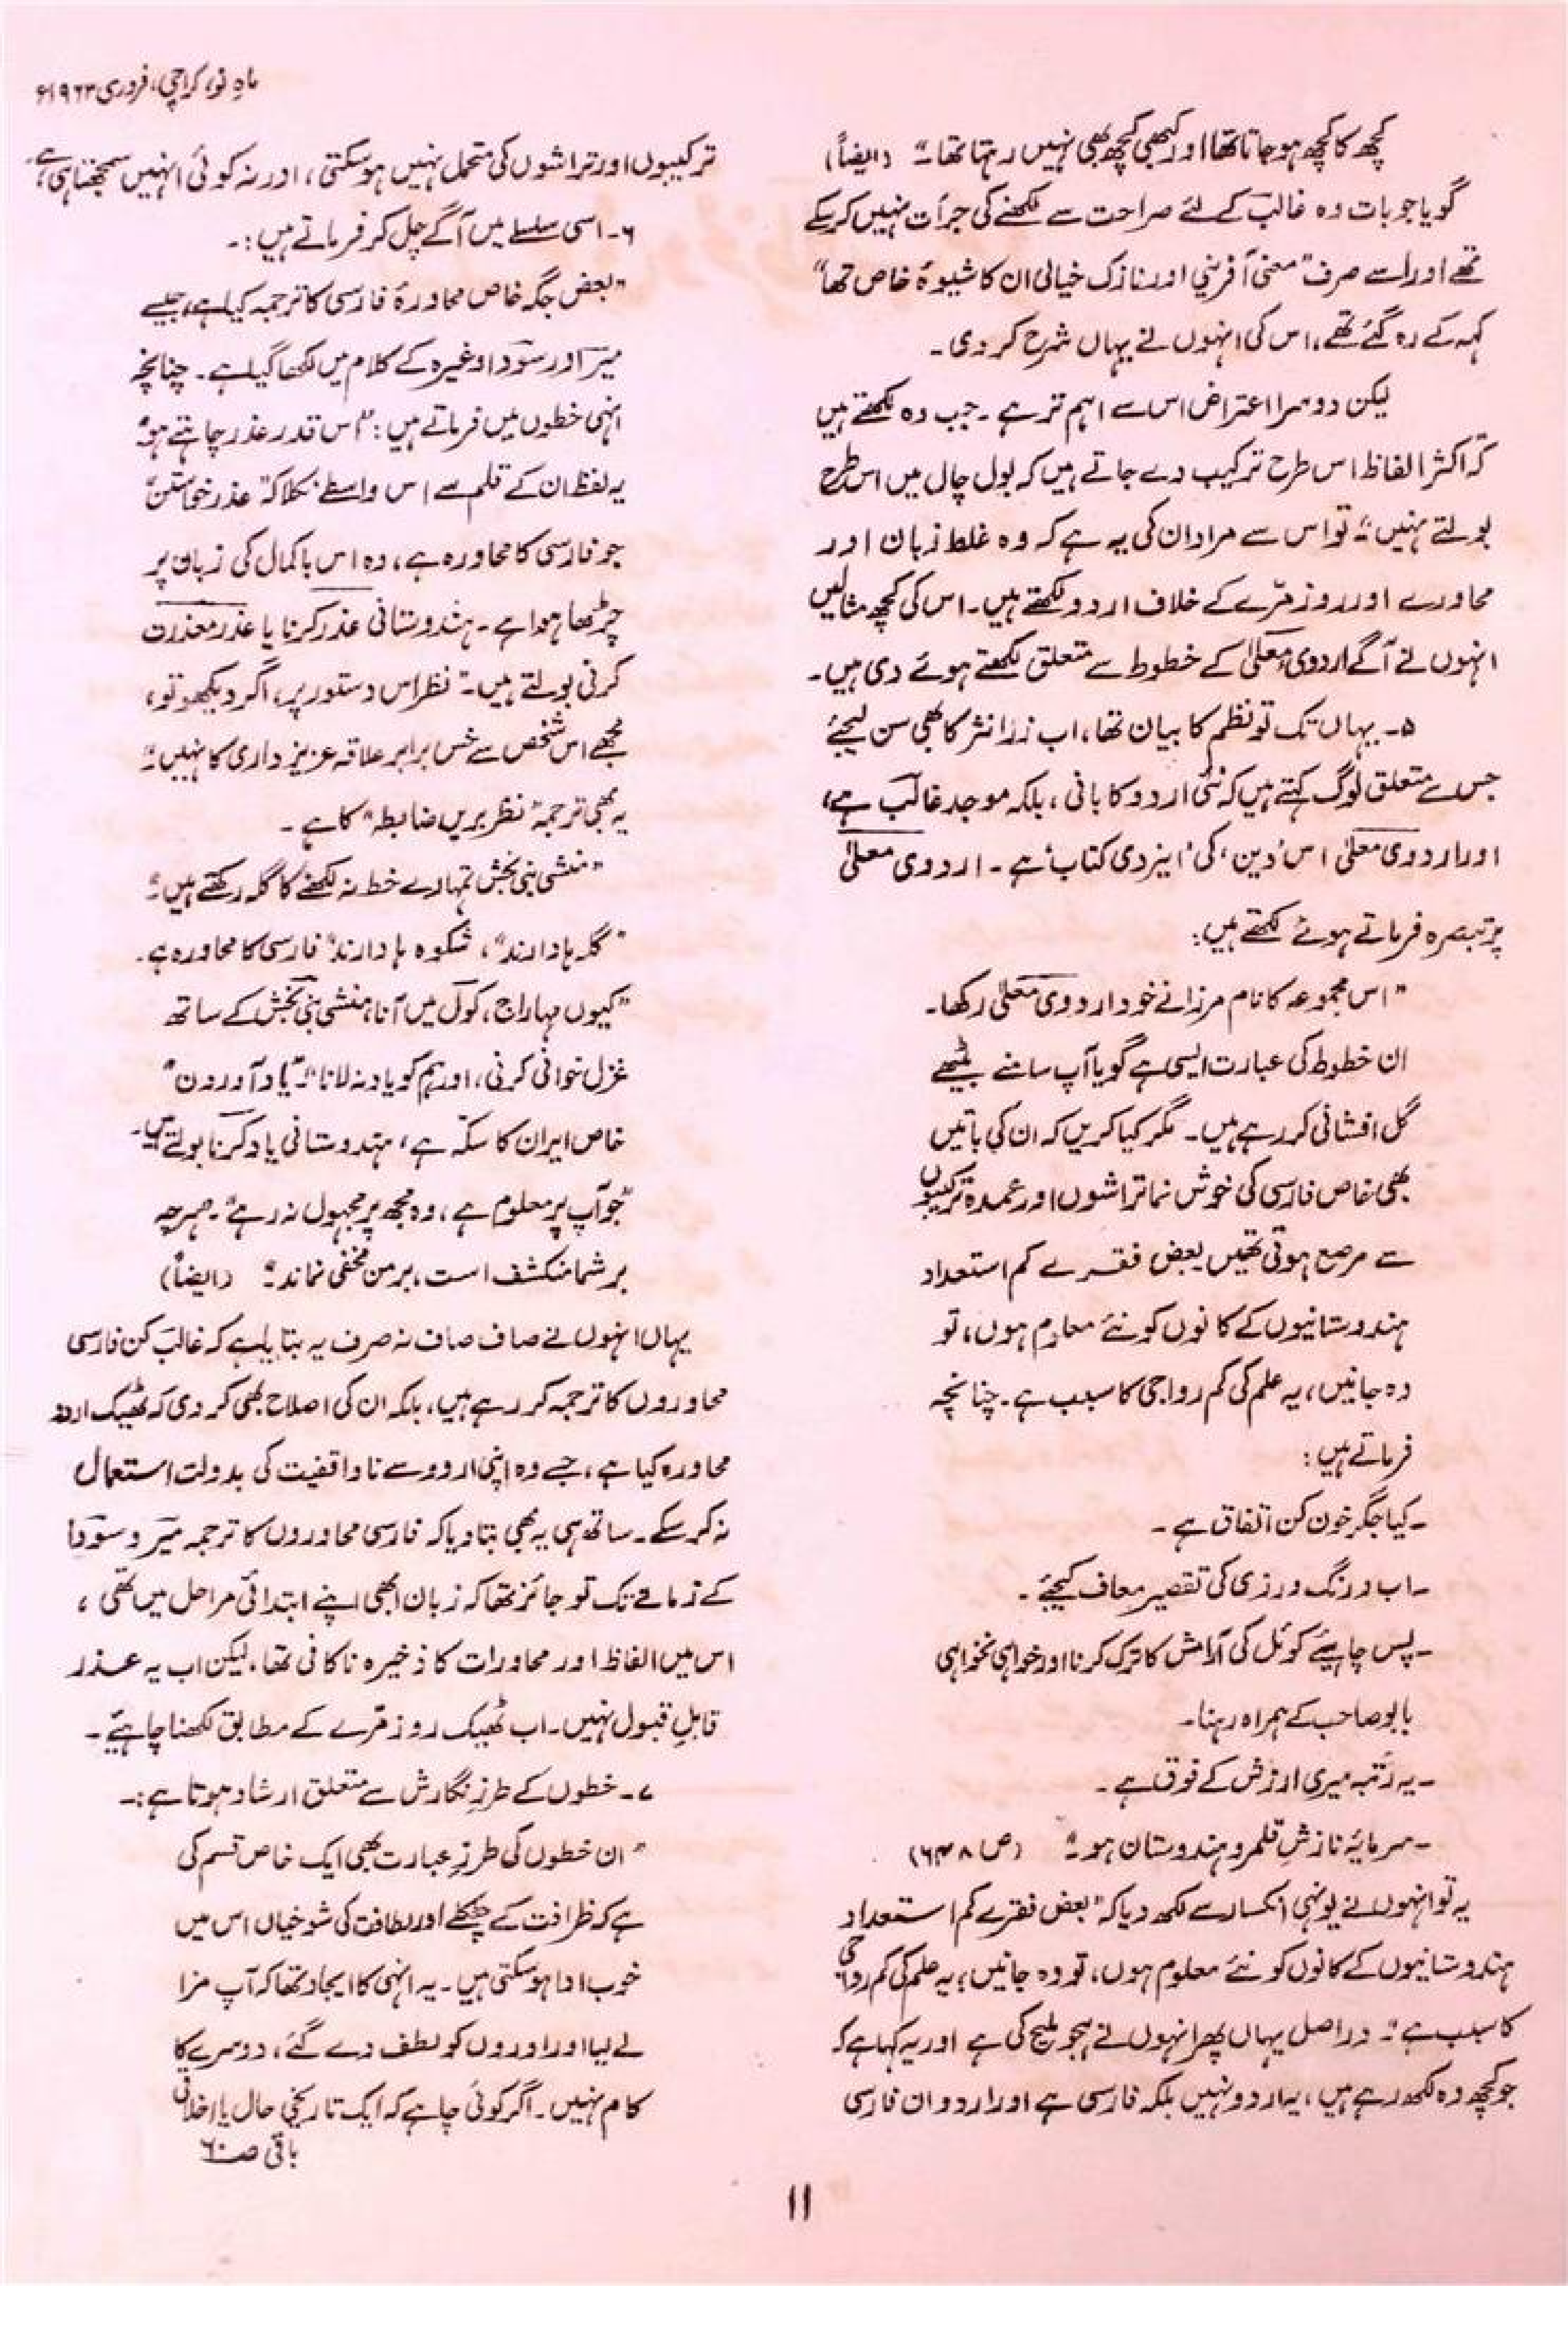 ماہِ نو، کراچی، فروری ۱۹۶۳ء
کچھ کا کچھ ہو جاتا تھا اور کبھی کچھ بھی نہیں رہتا تھا۔" (ایضاً)
گویا جو بات وہ غالبؔ کے لئے صراحت سے لکھنے کی جرأت نہیں کر سکے
تھے اور اسے صرف "معنی آفرینی اور نازک خیالی ان کا شیوۂ خاص تھا"
کہہ کے رہ گئے تھے، اس کی انہوں نے یہاں شرح کر دی۔
لیکن دوسرا اعتراض اس سے اہم تر ہے۔ جب وہ لکھتے ہیں
کہ "اکثر الفاظ اس طرح ترکیب دے جاتے ہیں کہ بول چال میں اس طرح
بولتے نہیں"۔ تو اس سے مراد ان کی یہ ہے کہ وہ غلط زبان اور
محاورے اور روزمرّے کے خلاف اردو لکھتے ہیں۔ اس کی کچھ مثالیں
انہوں نے آگے اردوی معلّیٰ کے خطوط سے متعلق لکھتے ہوئے دی ہیں۔
۵۔ یہاں تک تو نظم کا بیان تھا، اب ذرا نثر کا بھی سن لیجئے
جس سے متعلق لوگ کہتے ہیں کہ نئی اردو کا بانی، بلکہ موجد غالبؔ ہے،
اور اردوی معلّیٰ اس 'دین' کی 'ایزدی کتاب' ہے۔ اردوی معلّیٰ
پر تبصرہ فرماتے ہوئے لکھتے ہیں:
"اس مجموعہ کا نام مرزا نے خود اردوی معلّیٰ رکھا۔
ان خطوط کی عبارت ایسی ہے گویا آپ سامنے بیٹھے
گل افشانی کر رہے ہیں۔ مگر کیا کریں کہ ان کی باتیں
بھی خاص فارسی کی خوش نما تراشوں اور عمدہ ترکیبوں
سے مرصع ہوتی تھیں بعض فقرے کم استعداد
ہندوستانیوں کے کانوں کو نئے معلوم ہوں، تو
وہ جانیں، یہ علم کی کم رواجی کا سبب ہے۔ چنانچہ
فرماتے ہیں:
۔کیا جگر خون کن اتفاق ہے۔
۔اب درنگ ورزی کی تقصیر معاف کیجئے۔
۔پس چاہیئے کوئل کی آرامش کا ترک کرنا اور خواہی نخواہی
بابو صاحب کے ہمراہ رہنا۔
۔یہ رتبہ میری ارزش کے فوق ہے۔
۔سرمایۂ نازشِ قلمرو ہندوستان ہو۔" (ص ۶۴۸)
یہ تو انہوں نے یونہی انکسار سے لکھ دیا کہ "بعض فقرے کم استعداد
ہندوستانیوں کے کانوں کو نئے معلوم ہوں، تو وہ جانیں؛ یہ علم کی کم رواجی
کا سبب ہے"۔ دراصل یہاں پھر انہوں نے ہجو ملیح کی ہے اور یہ کہا ہے کہ
جو کچھ وہ لکھ رہے ہیں، یہ اردو نہیں بلکہ فارسی ہے اور اردو ان فارسی
ترکیبوں اور تراشوں کی متحمل نہیں ہو سکتی، اور نہ کوئی انہیں سمجھتا ہی ہے۔
۶۔ اسی سلسلے میں آگے چل کر فرماتے ہیں:۔
"بعض جگہ خاص محاورۂ فارسی کا ترجمہ کیا ہے، جیسے
میرؔ اور سوداؔ وغیرہ کے کلام میں لکھا گیا ہے۔ چنانچہ
انہی خطوں میں فرماتے ہیں: "اس قدر عذر چاہتے ہو"
یہ لفظ ان کے قلم سے اس واسطے نکلا کہ "عذر خواستن"
جو فارسی کا محاورہ ہے، وہ اس باکمال کی زبان پر
چڑھا ہوا ہے۔ ہندوستانی عذر کرنا یا عذر معذرت
کرنی بولتے ہیں۔ "نظر اس دستور پر، اگر دیکھو تو،
مجھے اس شخص سے خس برابر علاقہ عزیز داری کا نہیں"۔
یہ بھی ترجمہ "نظر بریں ضابطہ" کا ہے۔
"منشی نبی بخش تمہارے خط نہ لکھنے کا گلہ رکھتے ہیں"۔
"گلہ ہا دارند"، شکوہ ہا دارند" فارسی کا محاورہ ہے۔
"کیوں مہاراج، کول میں آنا، منشی نبی بخش کے ساتھ
غزل خوانی کرنی، اور ہم کو یاد نہ لانا"۔ "یاد آوردن"
خاص ایران کا سکّہ ہے، ہندوستانی یاد کرنا بولتے ہیں۔
"جو آپ پر معلوم ہے، وہ مجھ پر مجہول نہ رہے"۔ ہرچہ
بر شما منکشف است، بر من مخفی نماند۔" (ایضاً)
یہاں انہوں نے صاف صاف نہ صرف یہ بتایا ہے کہ غالبؔ کن فارسی
محاوروں کا ترجمہ کر رہے ہیں، بلکہ ان کی اصلاح بھی کر دی کہ ٹھیک اردو
محاورہ کیا ہے، جسے وہ اپنی اردو سے ناواقفیت کی بدولت استعمال
نہ کر سکے۔ ساتھ ہی یہ بھی بتا دیا کہ فارسی محاوروں کا ترجمہ میرؔ و سوداؔ
کے زمانے تک تو جائز تھا کہ زبان ابھی اپنے ابتدائی مراحل میں تھی،
اس میں الفاظ اور محاورات کا ذخیرہ ناکافی تھا، لیکن اب یہ عذر
قابلِ قبول نہیں۔ اب ٹھیک روزمرّے کے مطابق لکھنا چاہیئے۔
۷۔ خطوں کے طرزِ نگارش سے متعلق ارشاد ہوتا ہے:۔
"ان خطوں کی طرزِ عبارت بھی ایک خاص قسم کی
ہے کہ ظرافت کے چٹکلے اور لطافت کی شوخیاں اس میں
خوب ادا ہو سکتی ہیں۔ یہ انہی کا ایجاد تھا کہ آپ مزا
لے لیا اور اوروں کو لطف دے گئے، دوسرے کا
کام نہیں۔ اگر کوئی چاہے کہ ایک تاریخی حال یا اخلاقی
باقی صـ ۶۰
۱۱